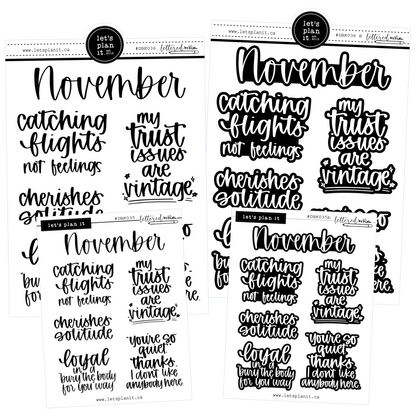 let's
plan
it
www.letsplanit.ca
#DBH036
lettered
November
catching
flights
not feelings
my
trust
issues
are
vintage
cherishes
solitude
let's
plan
it
www.letsplanit.ca
#DBH036 B
lettered
November
catching
flights
not feelings
my
trust
issues
are
vintage
cherishes
solitude
let's plan it
#DBH035
lettered
November
catching
flights
not feelings
my
trust
issues
are
vintage
cherishes
solitude
loyal
in a
bury the body
for you way
you're so
quiet.
thanks.
I don't like
anybody here.
www.letsplanit.ca
let's plan it
#DBH035B
lettered
November
catching
flights
not feelings
my
trust
issues
are
vintage
cherishes
solitude
loyal
in a
bury the body
for you way
you're so
quiet.
thanks.
I don't like
anybody here.
www.letsplanit.ca